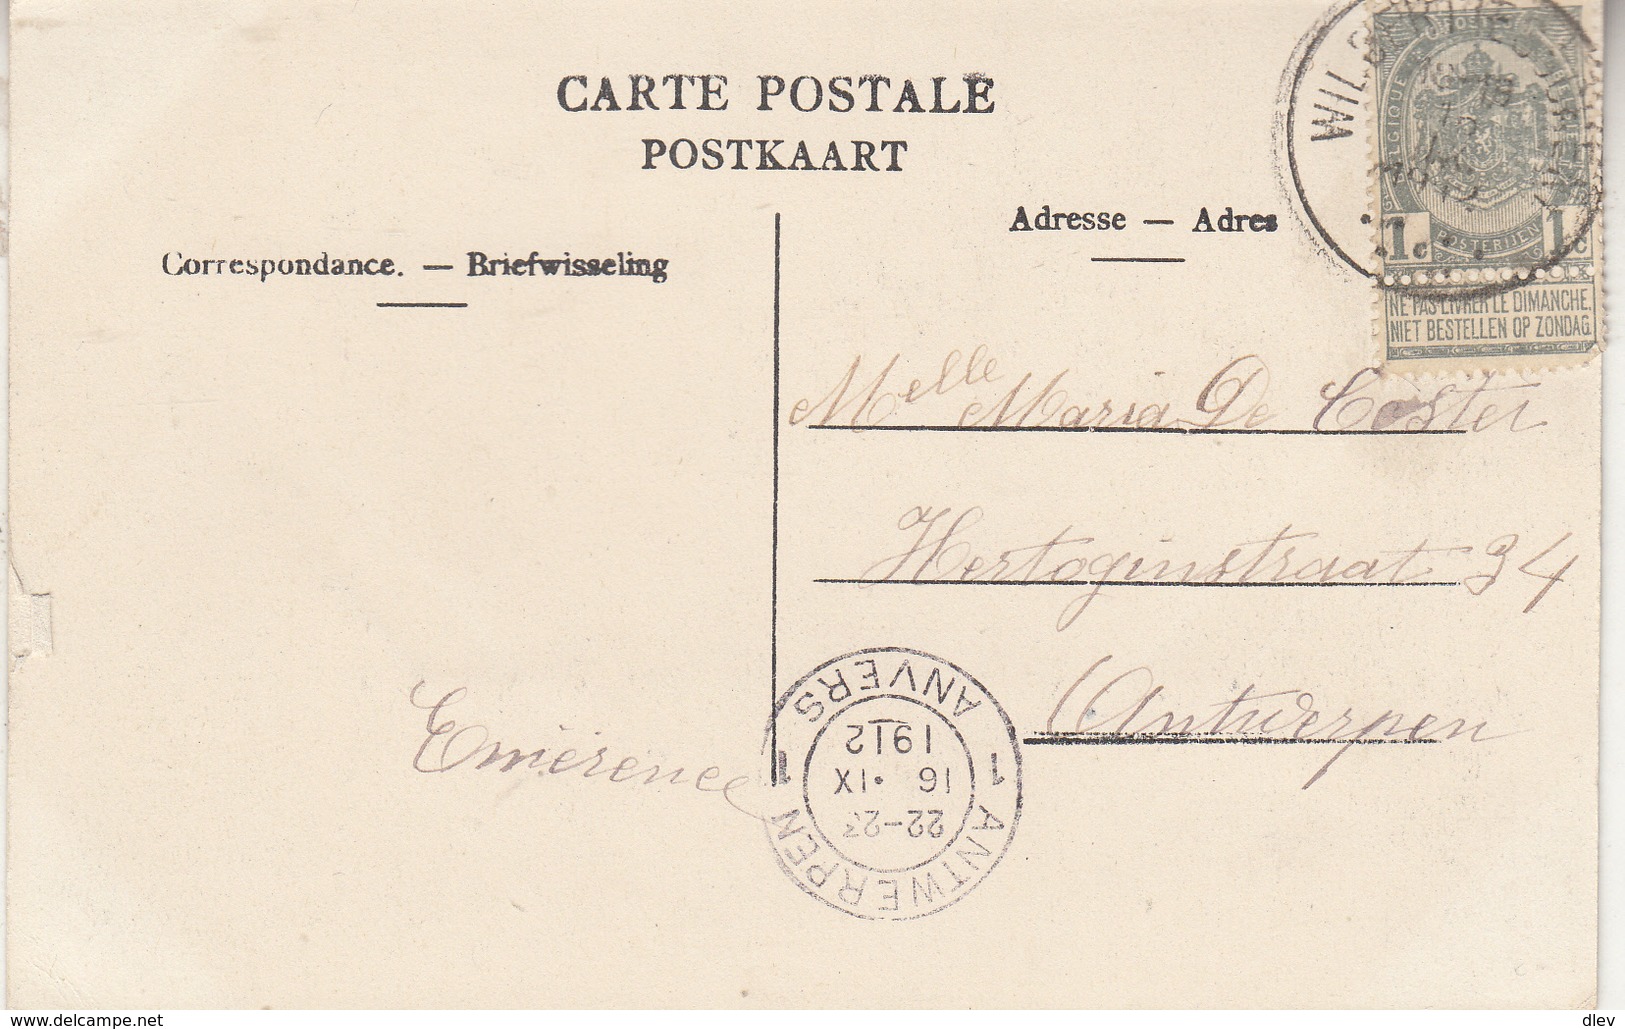 CARTE POSTALE
POSTKAART
Adresse — Adres
Correspondance. — Briefwisseling
BELGIQUE
POSTERIJEN
1c 1c
NE PAS LIVRER LE DIMANCHE.
NIET BESTELLEN OP ZONDAG.
WILS
Melle Maria De Coster
Hertoginstraat 34
Antwerpen
Emérence
1 ANTWERPEN 1 ANVERS
22-23
16 •IX
1912
www.delcampe.net
dlev